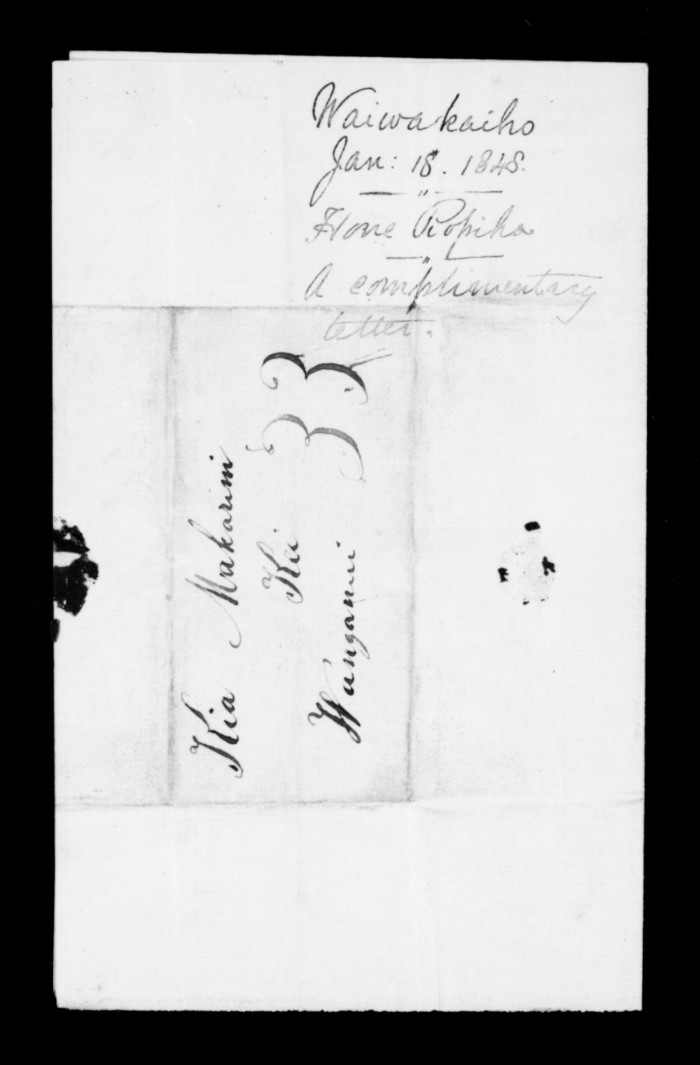 Waiwakaiho
Jan: 18. 1848.
Hone Ropiha
A complimentary
letter.
33
Kia Makarini
Kei
Wanganui